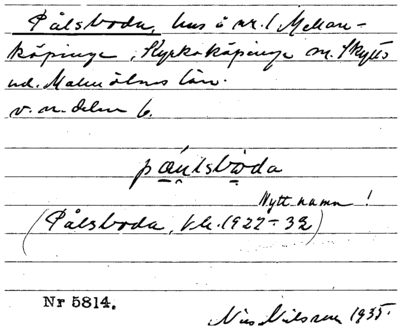 Pålsboda, hus å nr. 1 Mellan-
köpinge, Kyrkoköpinge sn. Skytts
hd. Malmöhus län.
v. n. delen 6.
pæu̯lsboda
Nytt namn!
(Pålsboda, tk. 1922-32)
Nr 5814.
Nils Nilsson 1935.